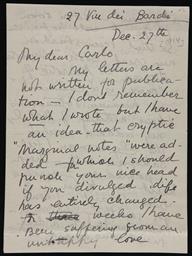 27 Via dei Bardi
Dec. 27th
My dear Carlo
My letters are
not written for publica-
tion – I don't remember
what I wrote but I have
an idea that cryptic
"marginal notes" were ad-
ded for which I should
punch your nice head
if you divulged. Life
has entirely changed.
weeks I have
been suffering from an
unhappy love